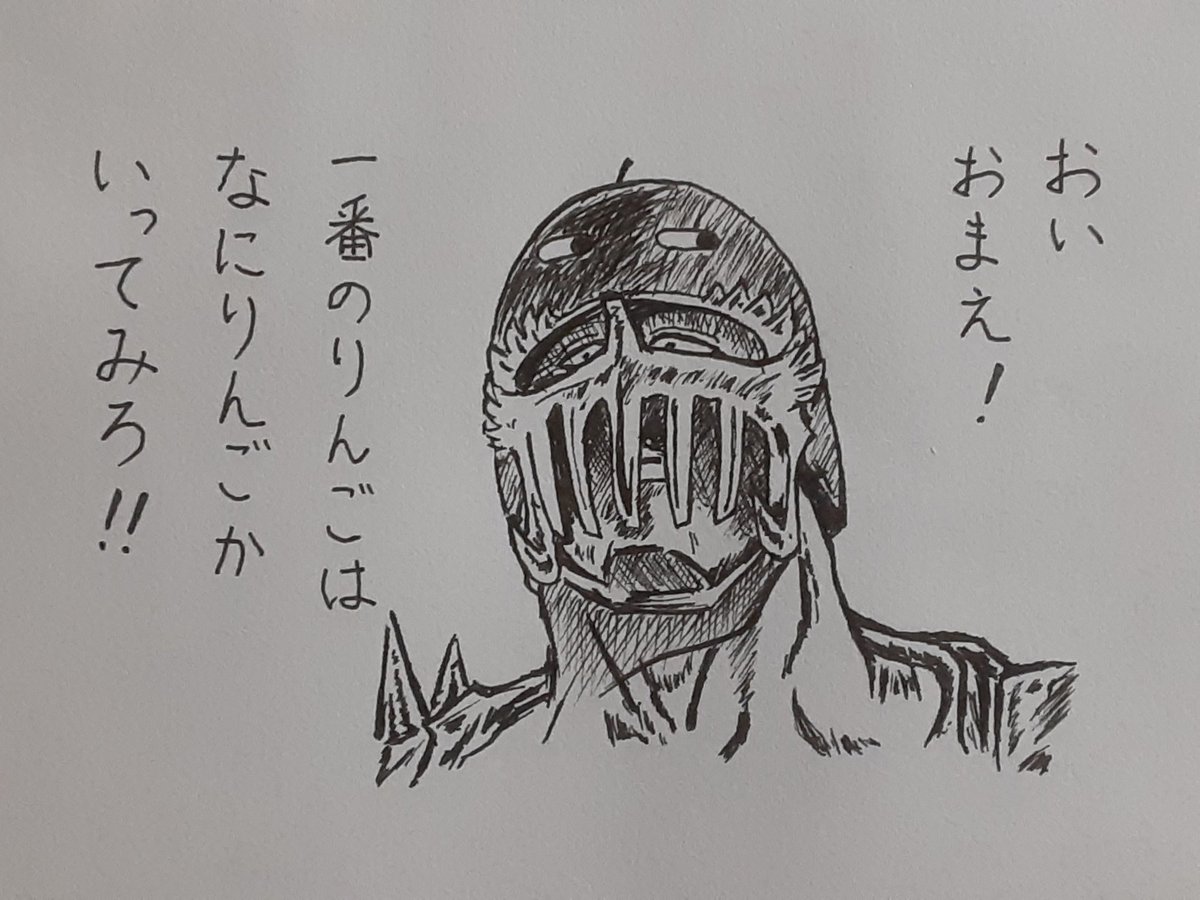 おい
おまえ!
一番のりんごは
なにりんごか
いってみろ!!